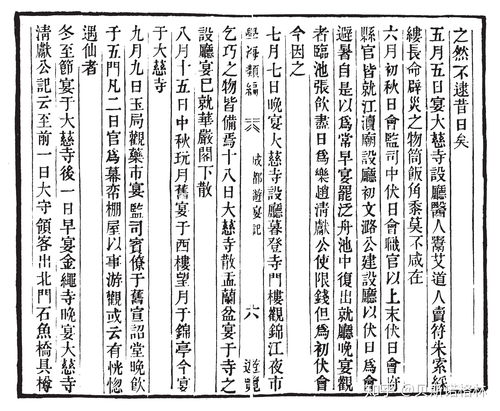 之然不逮昔日矣
五月五日宴大慈寺設廳醫人鬻艾道人賣符朱索綵
縷長命辟災之物筒飯角黍莫不咸在
六月初伏日會監司中伏日會職官以上末伏日會府
縣官皆就江瀆廟設廳初文潞公建設廳以伏日爲會
避暑自是以爲常早宴罷泛舟池中復出就廳晚宴觀
者臨池張飲盡日爲樂趙清獻公使限錢但爲初伏會
今因之
七月七日晚宴大慈寺設廳暮登寺門樓觀錦江夜市
學海類編 成都遊宴記 六 遊覽
乞巧之物皆備焉十八日大慈寺散盂蘭盆宴于寺之
設廳宴已就華嚴閣下散
八月十五日中秋玩月舊宴于西樓望月于錦亭今宴
于大慈寺
九月九日玉局觀藥市宴監司賓僚于舊宣詔堂晚飲
于五門凡二日官爲幕帟棚屋以事游觀或云有恍惚
遇仙者
冬至節宴于大慈寺後一日早宴金繩寺晚宴大慈寺
清獻公記云至前一日大守領客出北門石魚橋具樽
知乎